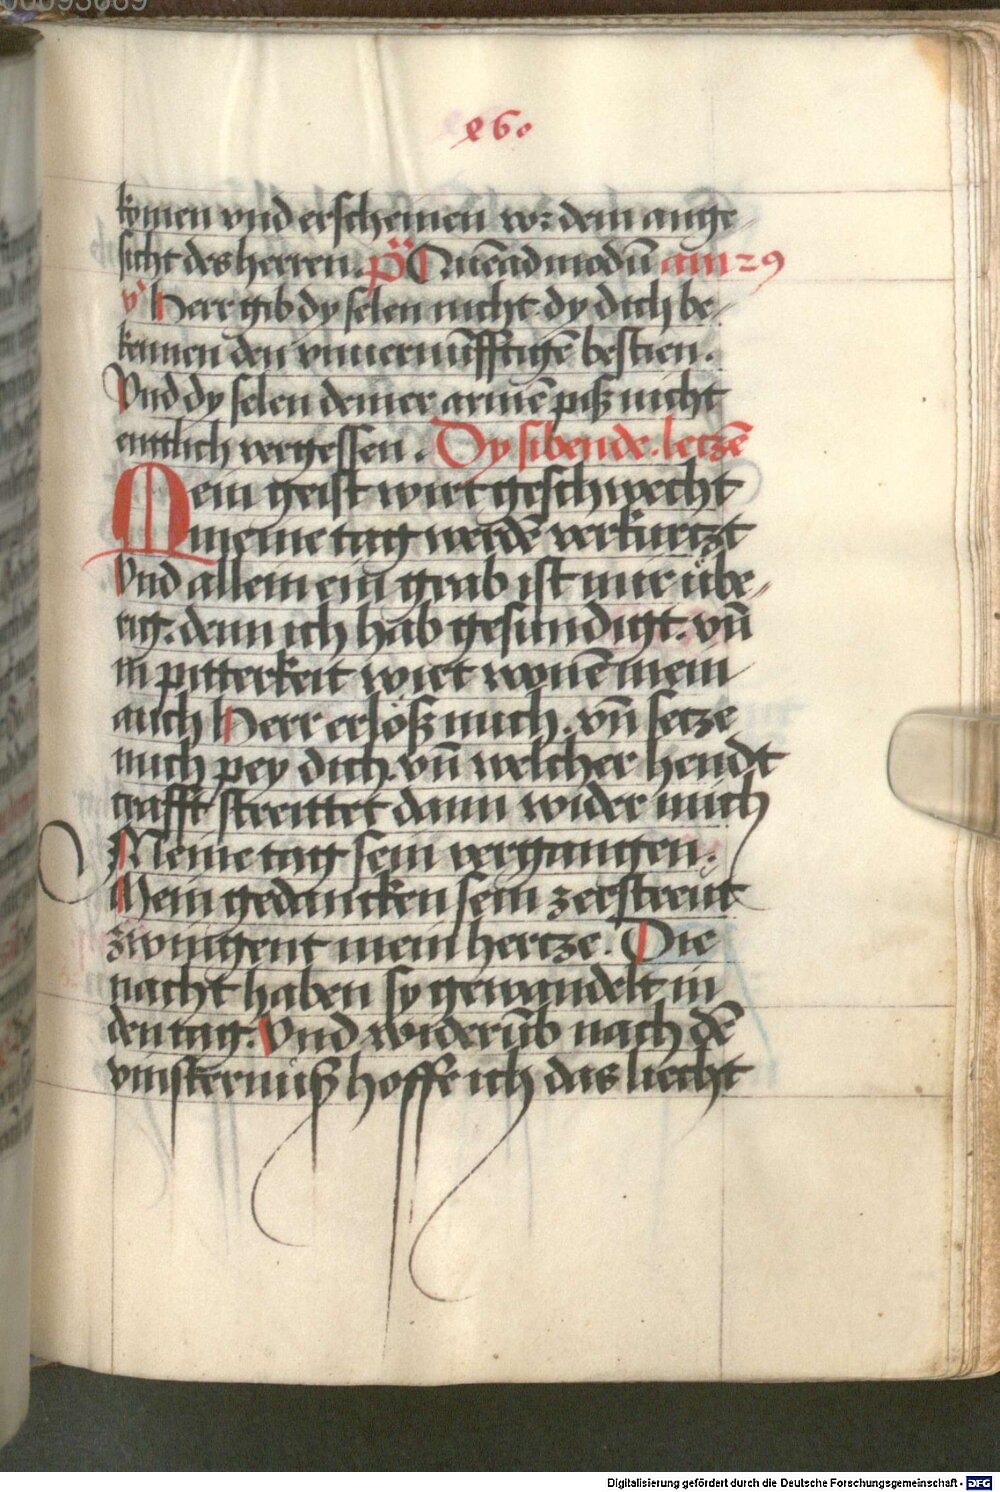 00093689
e6.
komen vnd erscheinen vor dem ange⸗
sicht des herren. p̈s Quēadmodū am 29
v̓ Herr gib dy selen nicht dy dich be⸗
kennen den vnuernūfftigē bestien.
Vnd dy selen deiner armē piß nicht
enttlich vergessen. Dy sibende letzē
Mein geist wirt geschwecht
meine tag werdē verkurtzt
Vnd allein ein grab ist mir übe⸗
rig. denn ich hab gesundigt. vn̄
in pitterkeit wirt wonē mein
auch Herr erlöß mich. vn̄ setze
mich pey dich. vn̄ welcher hendt
crafft streittet dann wider mich
Meine tag sein vergangen.
Mein gedancken sein zerstreut
zwingent mein hertze. Die
nacht haben sy gewandelt in
den tag. Vnd widerūb nach dē
vinsternüß hoffe ich das liecht
Digitalisierung gefördert durch die Deutsche Forschungsgemeinschaft - DFG